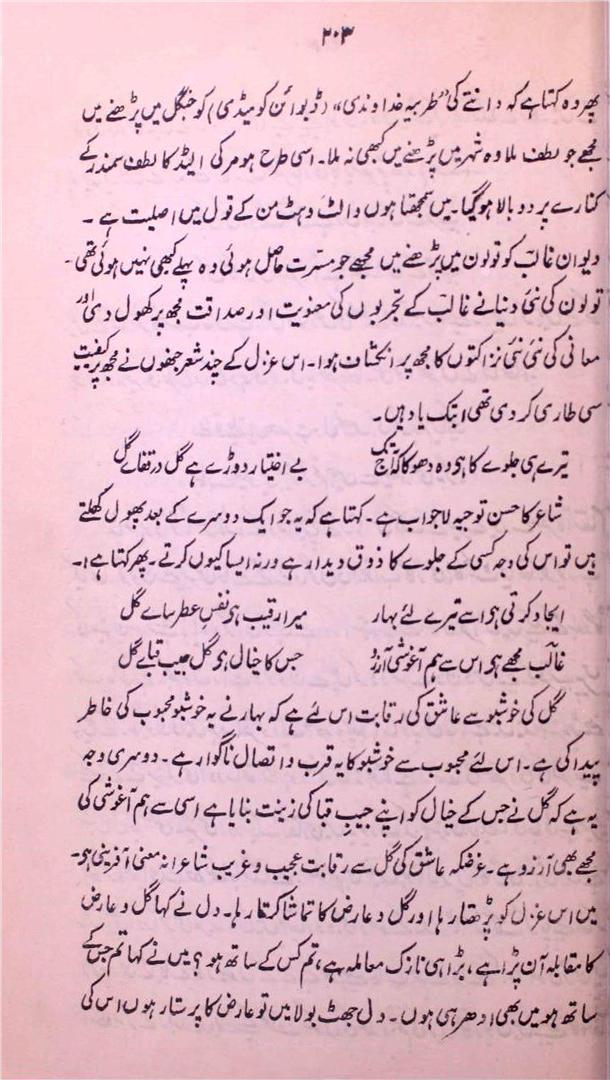 ۲۰۳
پھر وہ کہتا ہے کہ دانتے کی "طربیہ خداوندی" (ڈیوائن کومیڈی) کو جنگل میں پڑھنے میں
مجھے جو لطف ملا وہ شہر میں پڑھنے میں کبھی نہ ملا۔ اسی طرح ہومر کی الیڈ کا لطف سمندر کے
کنارے پر دوبالا ہوگیا۔ میں سمجھتا ہوں والٹ وہٹ من کے قول میں اصلیت ہے ۔
دیوان غالب کو تولون میں پڑھنے میں مجھے جو مسرت حاصل ہوئی وہ پہلے کبھی نہیں ہوئی تھی۔
تولون کی نئی دنیا نے غالب کے تجربوں کی معنویت اور صداقت مجھ پر کھول دی اور
معانی کی نئی نئی نزاکتوں کا مجھ پر انکشاف ہوا۔ اس غزل کے چند شعر جنھوں نے مجھ پر کیفیت
سی طاری کر دی تھی ابتک یاد ہیں۔
تیرے ہی جلوے کا ہی وہ دھوکا کہ آج تک بے اختیار دوڑے ہے گل در قفاے گل
شاعر کا حسن توجیہ لاجواب ہے ۔ کہتا ہے کہ یہ جو ایک دوسرے کے بعد پھول کھلتے
ہیں تو اس کی وجہ کسی کے جلوے کا ذوق دیدار ہے ورنہ ایسا کیوں کرتے۔ پھر کہتا ہے :۔
ایجاد کرتی ہو اسے تیرے لئے بہار میرا رقیب ہو نفسِ عطر ساے گل
غالب مجھے ہو اس سے ہم آغوشی آرزو جس کا خیال ہو گل جیب قباے گل
گل کی خوشبو سے عاشق کی رقابت اس لئے ہے کہ بہار نے یہ خوشبو محبوب کی خاطر
پیدا کی ہے۔ اس لئے محبوب سے خوشبو کا یہ قرب و اتصال ناگوار ہے۔ دوسری وجہ
یہ ہے کہ گل نے جس کے خیال کو اپنے جیبِ قبا کی زینت بنایا ہے اسی سے ہم آغوشی کی
مجھے بھی آرزو ہے ۔ غرضکہ عاشق کی گل سے رقابت عجیب و غریب شاعرانہ معنی آفرینی ہو۔
میں اس غزل کو پڑھتا رہا اور گل و عارض کا تماشا کرتا رہا۔ دل نے کہا گل و عارض
کا مقابلہ آن پڑا ہے ، بڑا ہی نازک معاملہ ہے، تم کس کے ساتھ ہو ؟ میں نے کہا تم جس کے
ساتھ ہو میں بھی ادھر ہی ہوں ۔ دل جھٹ بولا میں تو عارض کا پرستار ہوں اس کی